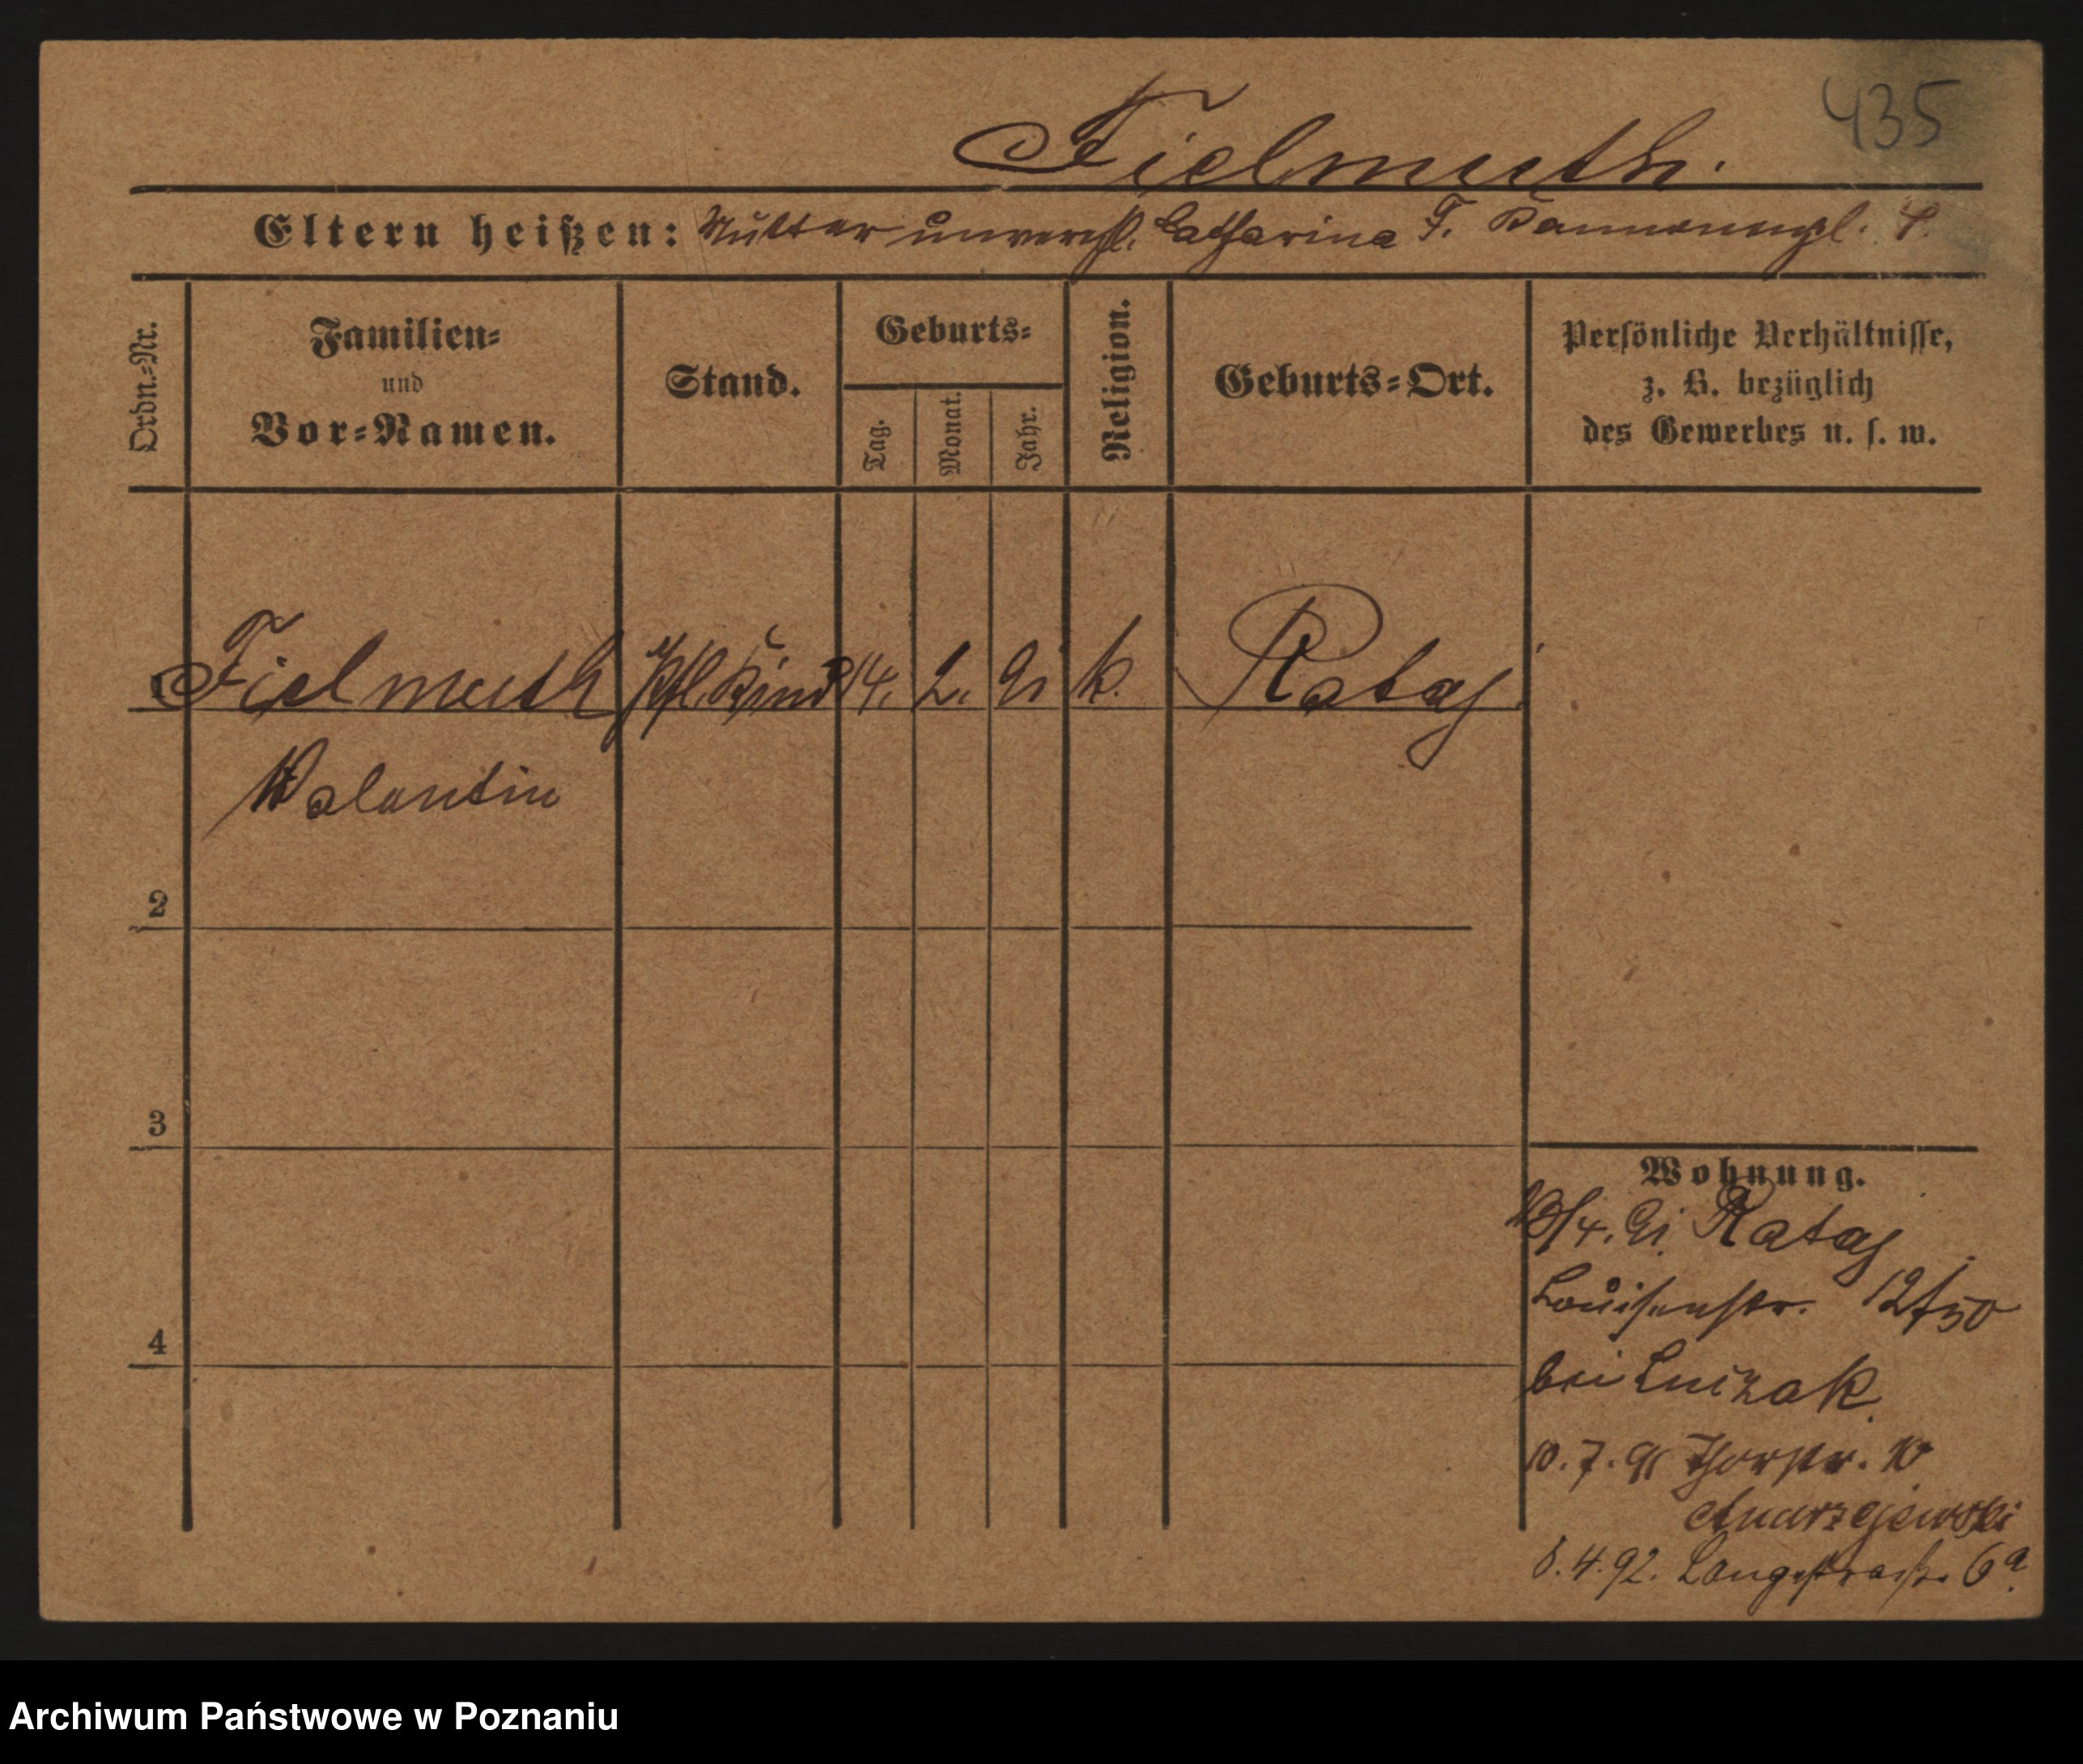 435
Fielmuth.
Eltern heißen: Mutter unverehl. Catharina F.
Ordn.-Nr.
Familien-
und
Vor-Namen.
Stand.
Geburts-
Tag.
Monat.
Jahr.
Religion.
Geburts-Ort.
Persönliche Verhältnisse,
z. B. bezüglich
des Gewerbes u. s. w.
1 Fielmuth Pfl. Kind 14. 2. 91 k. Rataj
Valentin
2
3
4
Wohnung.
/4. 91. Rataj
Louisenstr. 12/50
bei Luczak
10. 7. 91 Thorstr. 10
Andrzejewski
8. 4. 92. Langestraße 6a.
Archiwum Państwowe w Poznaniu